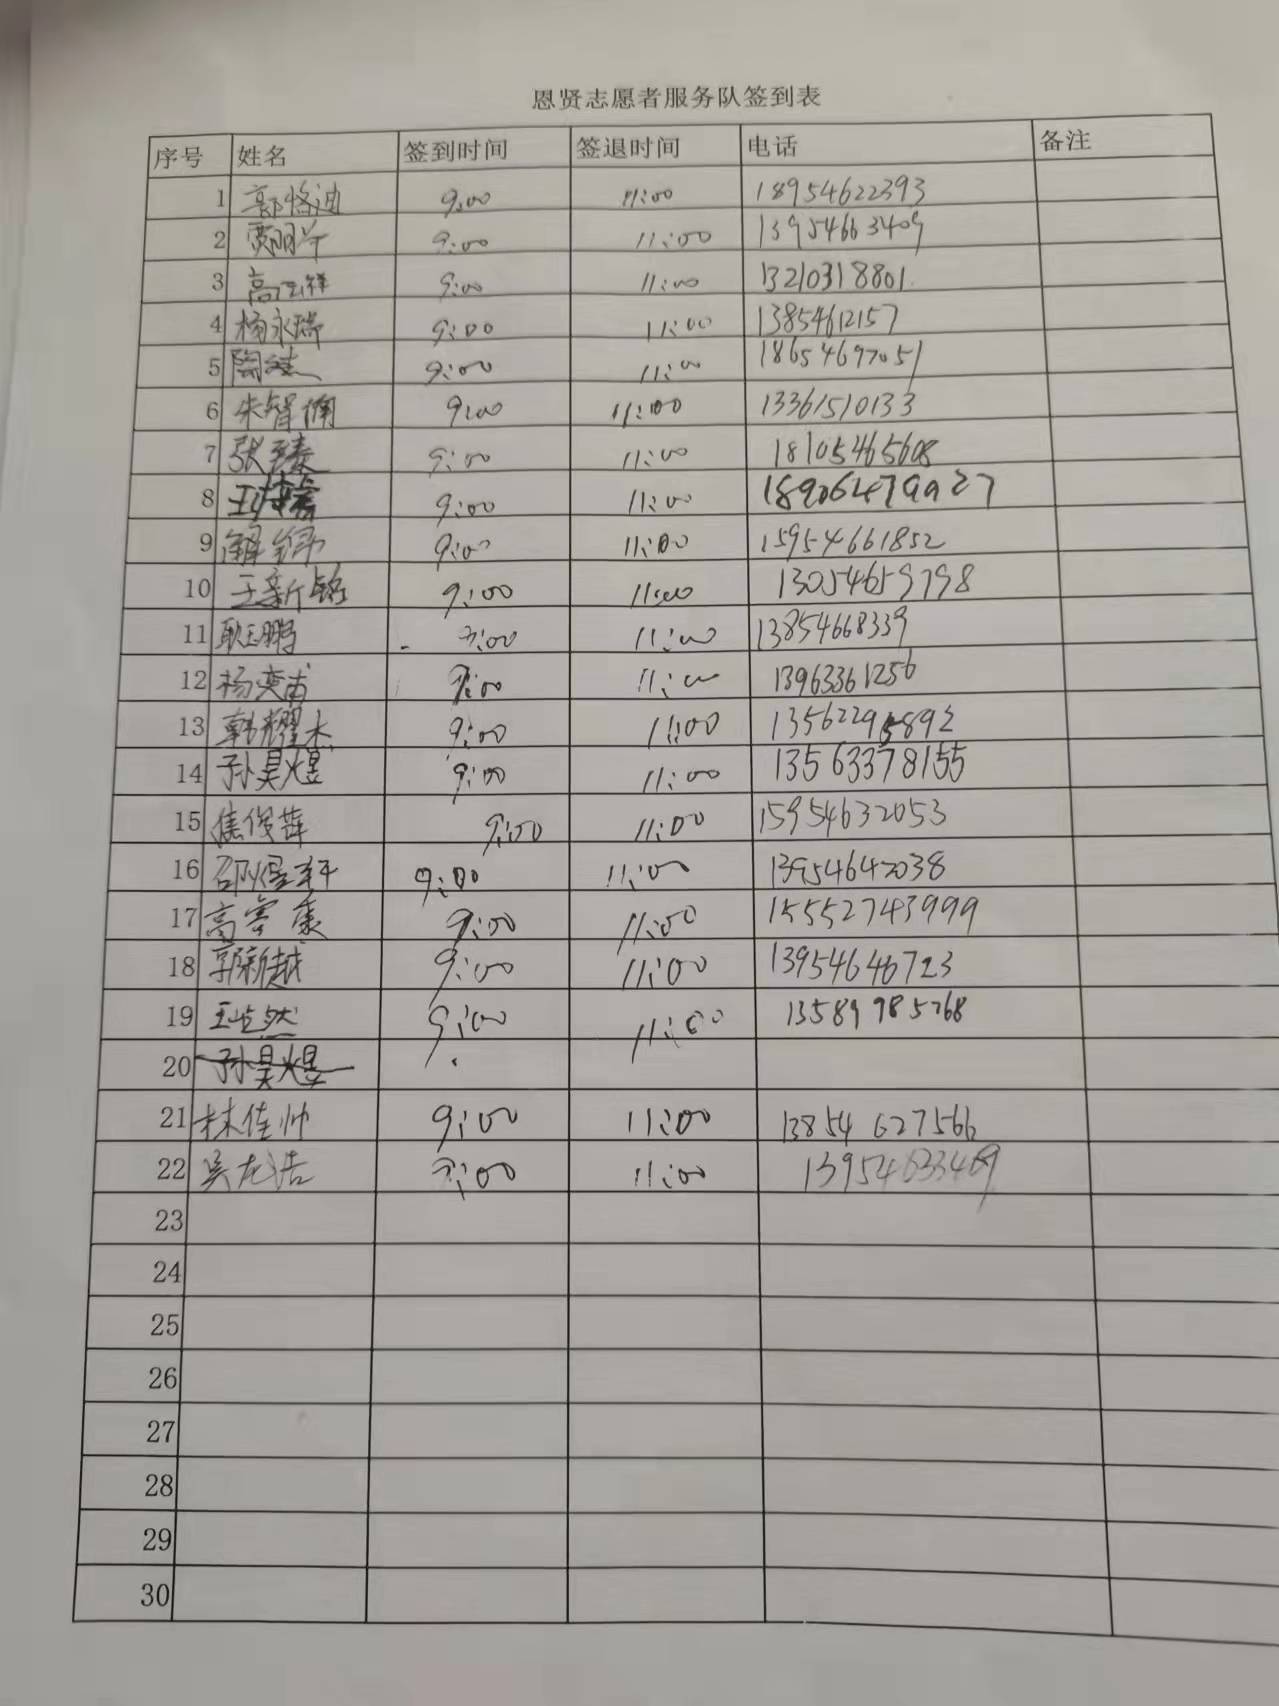 恩贤志愿者服务队签到表
序号 姓名 签到时间 签退时间 电话 备注
1 郭恪迪 9:00 11:00 18954622393
2 贾明 9:00 11:00 13954663409
3 高 祥 9:00 11:00 13210318801
4 杨永瑞 9:00 11:00 13854612157
5 陶 9:00 11:00 18654697051
6 朱智 9:00 11:00 13361510133
7 张 9:00 11:00 18105465608
8 王 9:00 11:00 18906479927
9 9:00 11:00 15954661852
10 王新铭 9:00 11:00 13054659798
11 耿玉鹏 9:00 11:00 13854668339
12 杨奕甫 9:00 11:00 13963361256
13 韩耀杰 9:00 11:00 13562295892
14 孙昊煜 9:00 11:00 13563378155
15 焦俊 9:00 11:00 15954632053
16 邵煜轩 9:00 11:00 13954642038
17 高 9:00 11:00 15552743999
18 郭新越 9:00 11:00 13954646723
19 王 然 9:00 11:00 13589985768
20 孙昊煜
21 林佳帅 9:00 11:00 13854627566
22 吴龙浩 9:00 11:00 13954633469
23
24
25
26
27
28
29
30